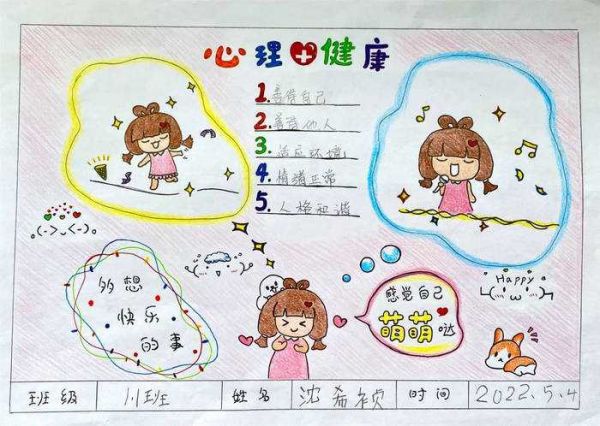 心理健康
1. 善待自己
2. 善待他人
3. 适应环境
4. 情绪正常
5. 人格和谐
多想
快乐
的事
Happy
感觉自己
萌萌哒
班级 川班 姓名 沈希颖 时间 2022.5.4